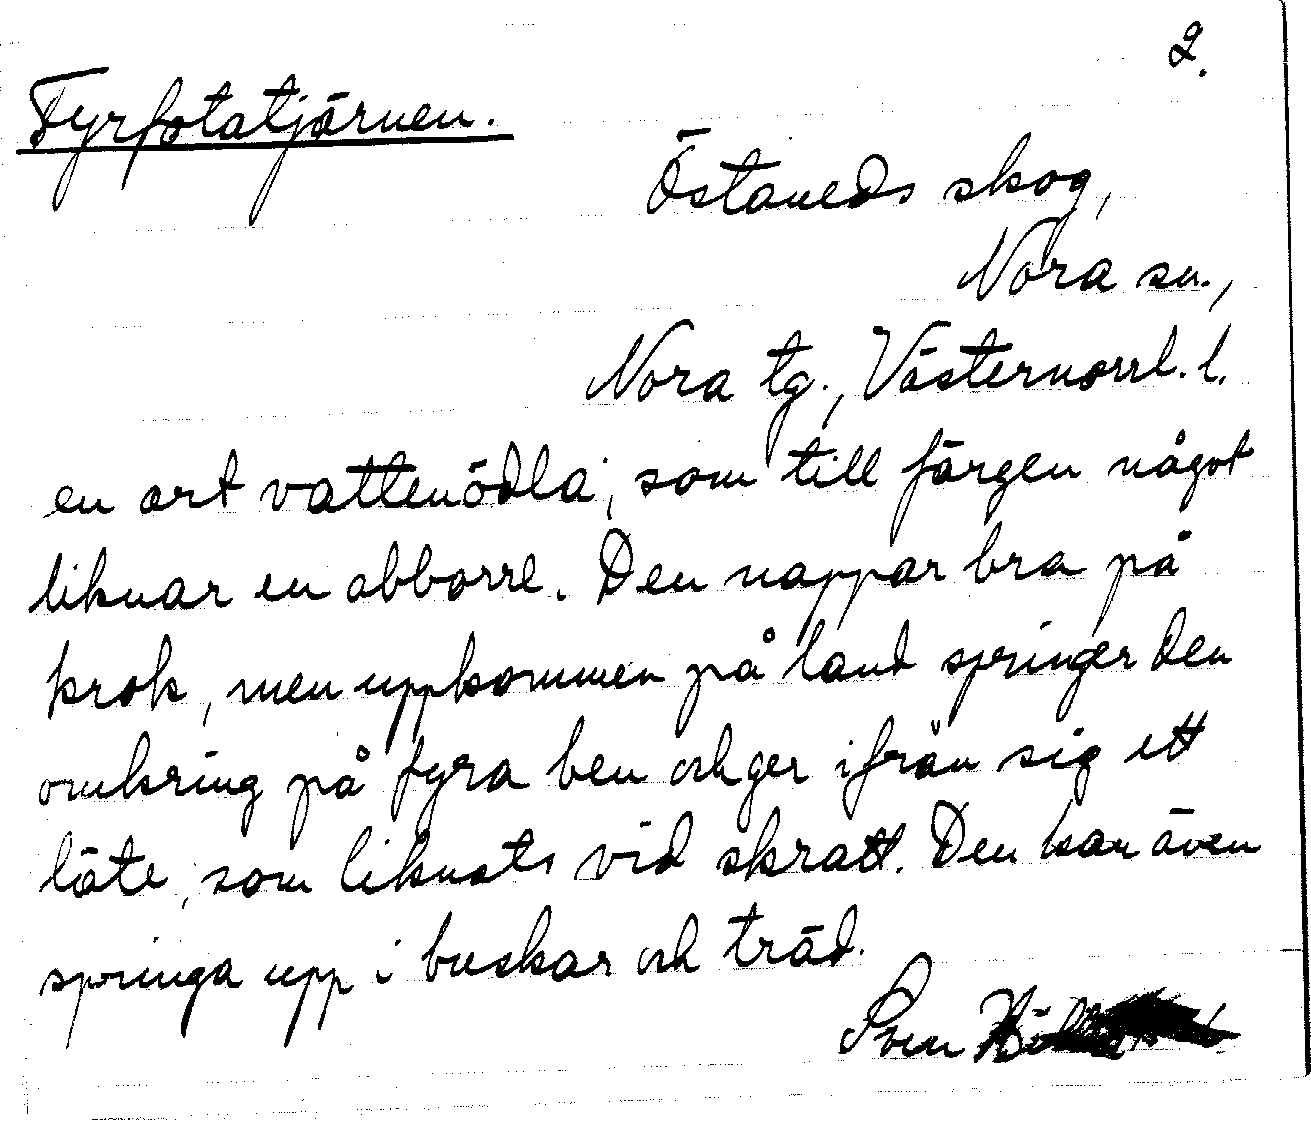 2.
Fyrfotatjärnen.
Östaneds skog,
Nora sn.,
Nora tg., Västernorrl. l.
en art vattenödla, som till färgen något
liknar en abborre. Den nappar bra på
krok, men uppkommen på land springer den
omkring på fyra ben och ger ifrån sig ett
läte, som liknats vid skratt. Den kan även
springa upp i buskar och träd.
Sven